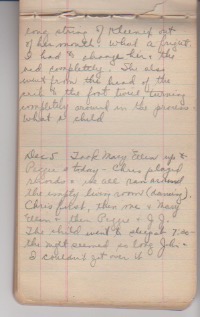 long string of
of her mouth. What a fright
I had to change her & the
bed completely. She also
went from the head of the
crib to the foot twice turning
completely around in the process.
What a child

Dec 5 Took Mary Ellen up to
today - Chris played
records & we all ran around
the empty living room (dancing).
Chris first, then me & Mary
Ellen & then &
The child went to sleep at
the night seemed so long John &
I couldn't get over it